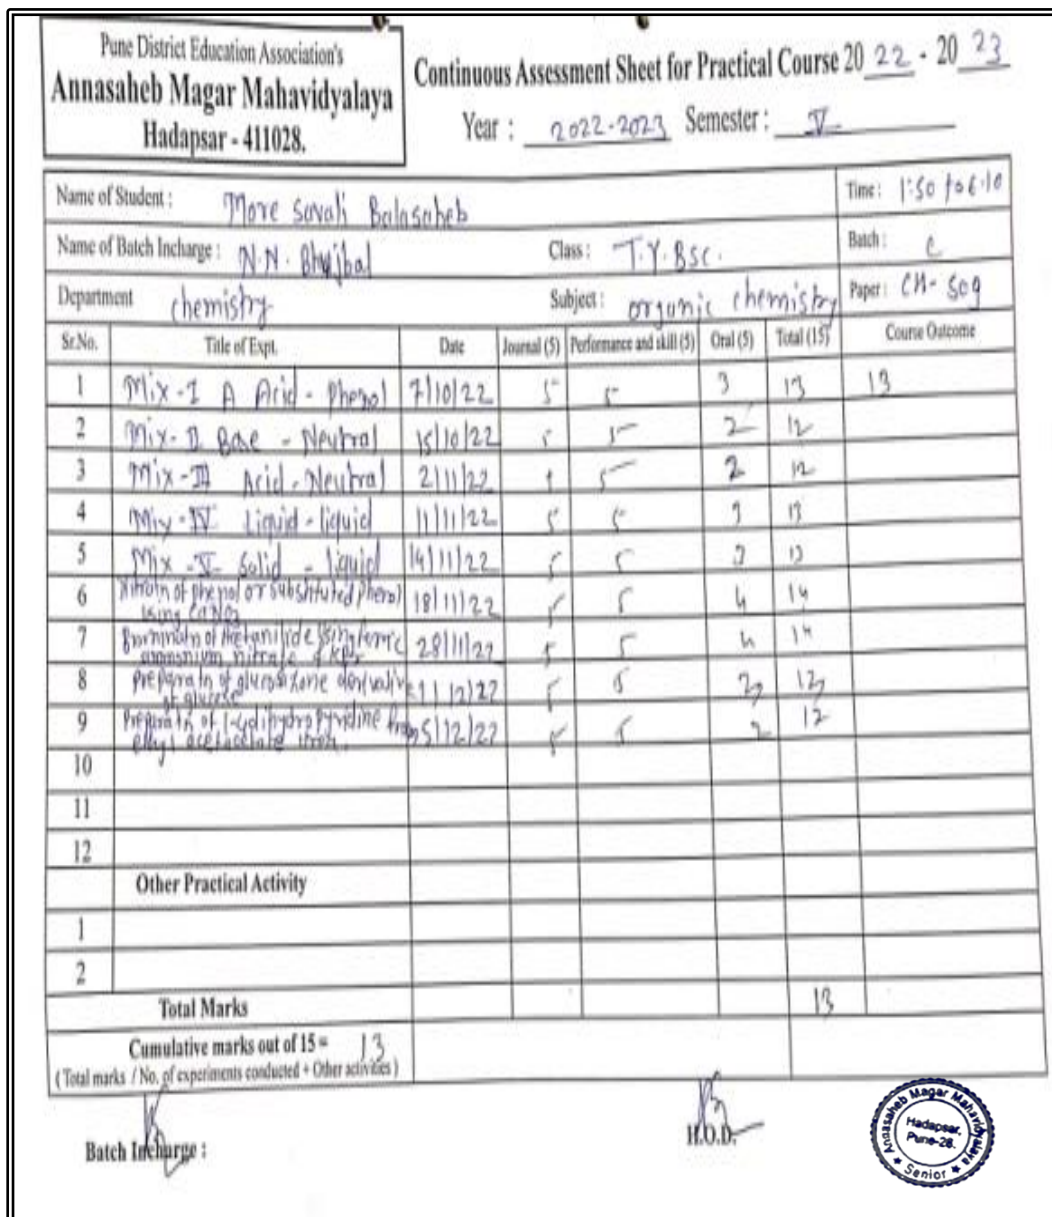 Pune District Education Association's
Annasaheb Magar Mahavidyalaya
Hadapsar - 411028.
Continuous Assessment Sheet for Practical Course 20 22 - 20 23
Year : 2022-2023 Semester : V
Name of Student : More Savali Balasaheb
Time : 1:50 to 6:10
Name of Batch Incharge : N.N. Bhujbal Class : T.Y.BSC. Batch : C
Department chemistry Subject : organic chemistry Paper : CH-509
Sr.No. Title of Expt. Date Journal (5) Performance and skill (5) Oral (5) Total (15) Course Outcome
1 Mix-I A Acid - Phenol 7/10/22 5 5 3 13 13
2 Mix-II Base - Neutral 15/10/22 5 5 2 12
3 Mix-III Acid-Neutral 2/11/22 5 2 12
4 Mix-IV Liquid-liquid 11/11/22 5 5 3 13
5 Mix-V Solid - liquid 14/11/22 5 5 3 13
6 of phenol or substituted phenol using 18/11/22 5 5 4 14
7 ammonium nitrate & KBr 28/11/22 5 5 4 14
8 of glucose 1/12/22 5 5 12
9 ethyl acetoacetate 5/12/22 5 5 2 12
10
11
12
Other Practical Activity
1
2
Total Marks 13
Cumulative marks out of 15 = 13
( Total marks / No. of experiments conducted + Other activities )
Batch Incharge :
H.O.D.
Annasaheb Magar Mahavidyalaya
Hadapsar,
Pune-28.
★ Senior ★